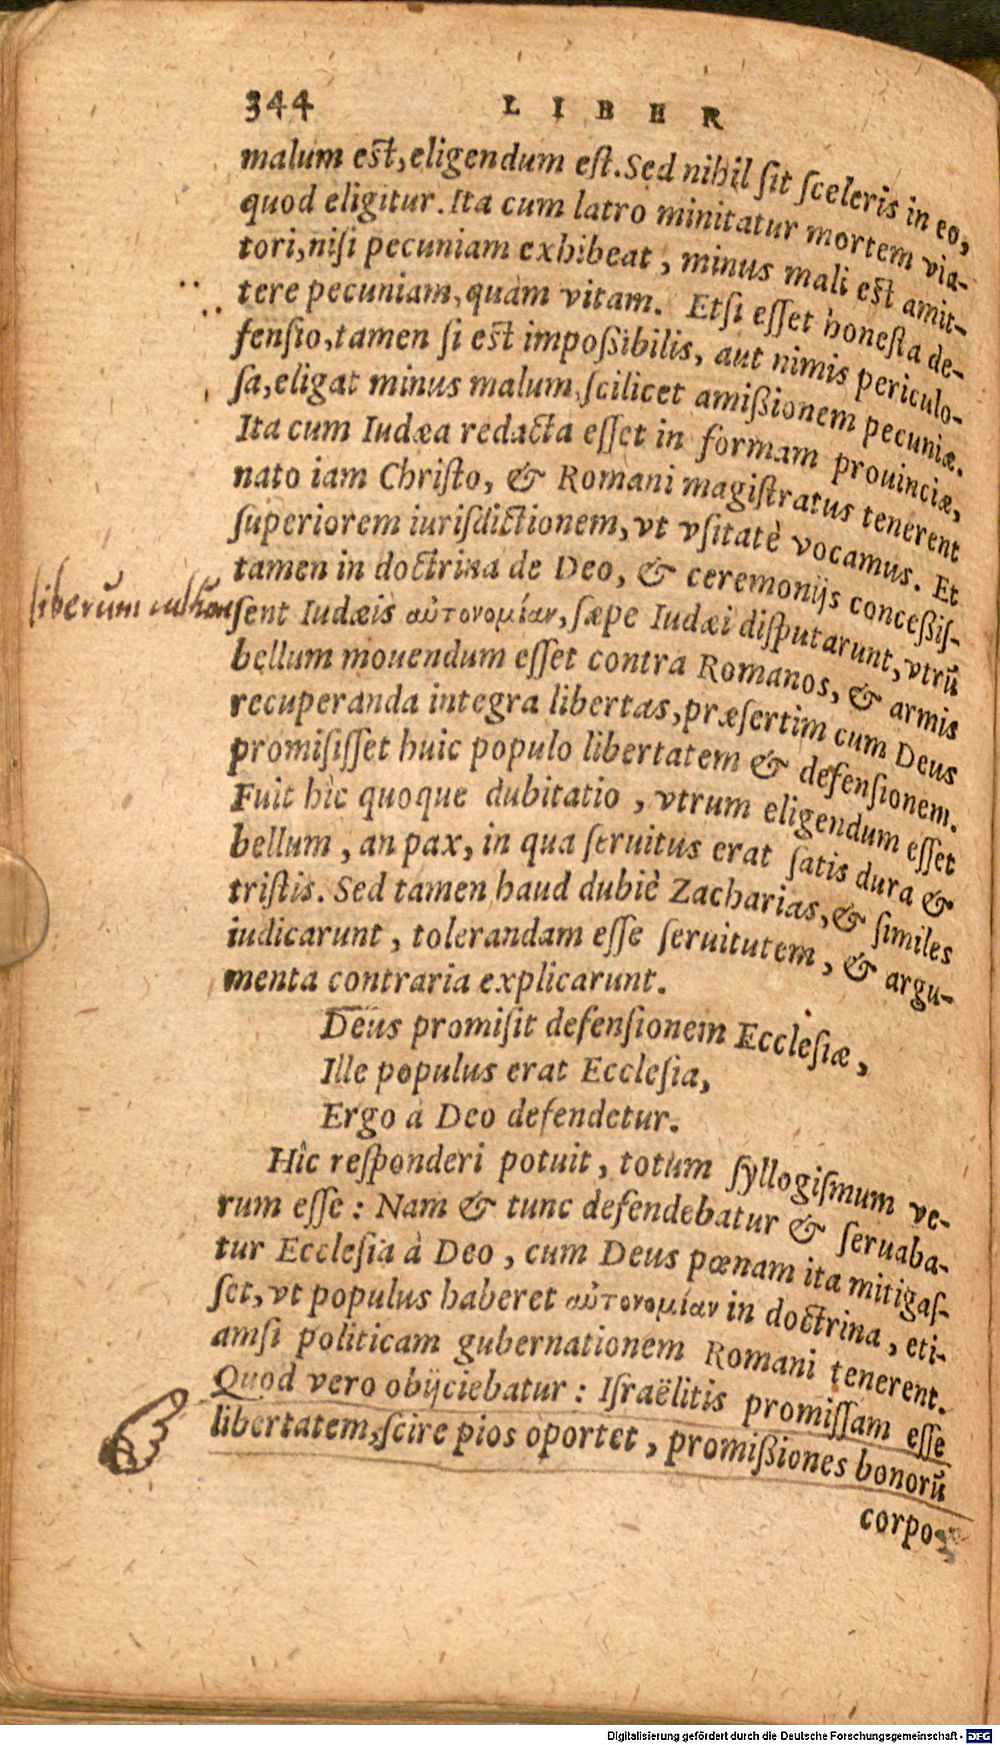 344 LIBER
malum est, eligendum eſt. Sed nihil ſit ſceleris in eo,
quod eligitur. Ita cum latro minitatur mortem via-
tori, niſi pecuniam exhibeat, minus mali est amit-
tere pecuniam, quàm vitam. Etſi eſſet honeſta de-
fenſio, tamen ſi est impoßibilis, aut nimis periculo-
ſa, eligat minus malum, ſcilicet amißionem pecuniæ.
Ita cum Iudæa redacta eſſet in formam prouinciæ,
nato iam Chriſto, & Romani magiſtratus tenerent
ſuperiorem iuriſdictionem, vt vſitatè vocamus. Et
tamen in doctrina de Deo, & ceremonijs conceßiſ-
liberum
ſent Iudæis αὐτονομίαν, ſæpe Iudæi diſputarunt, vtrū
bellum mouendum eſſet contra Romanos, & armis
recuperanda integra libertas, præſertim cum Deus
promiſiſſet huic populo libertatem & defenſionem.
Fuit hìc quoque dubitatio, vtrum eligendum eſſet
bellum, an pax, in qua ſeruitus erat ſatis dura &
triſtis. Sed tamen haud dubiè Zacharias, & ſimiles
iudicarunt, tolerandam eſſe ſeruitutem, & argu-
menta contraria explicarunt.
Deus promiſit defenſionem Eccleſiæ,
Ille populus erat Eccleſia,
Ergo à Deo defendetur.
Hîc reſponderi potuit, totum ſyllogiſmum ve-
rum eſſe: Nam & tunc defendebatur & ſeruaba-
tur Eccleſia à Deo, cum Deus pœnam ita mitigaſ-
ſet, vt populus haberet αὐτονομίαν in doctrina, eti-
amſi politicam gubernationem Romani tenerent.
Quod vero obijciebatur: Iſraëlitis promiſſam eſſe
libertatem, ſcire pios oportet, promißiones bonorū
corpo-
Digitalisierung gefördert durch die Deutsche Forschungsgemeinschaft - DFG